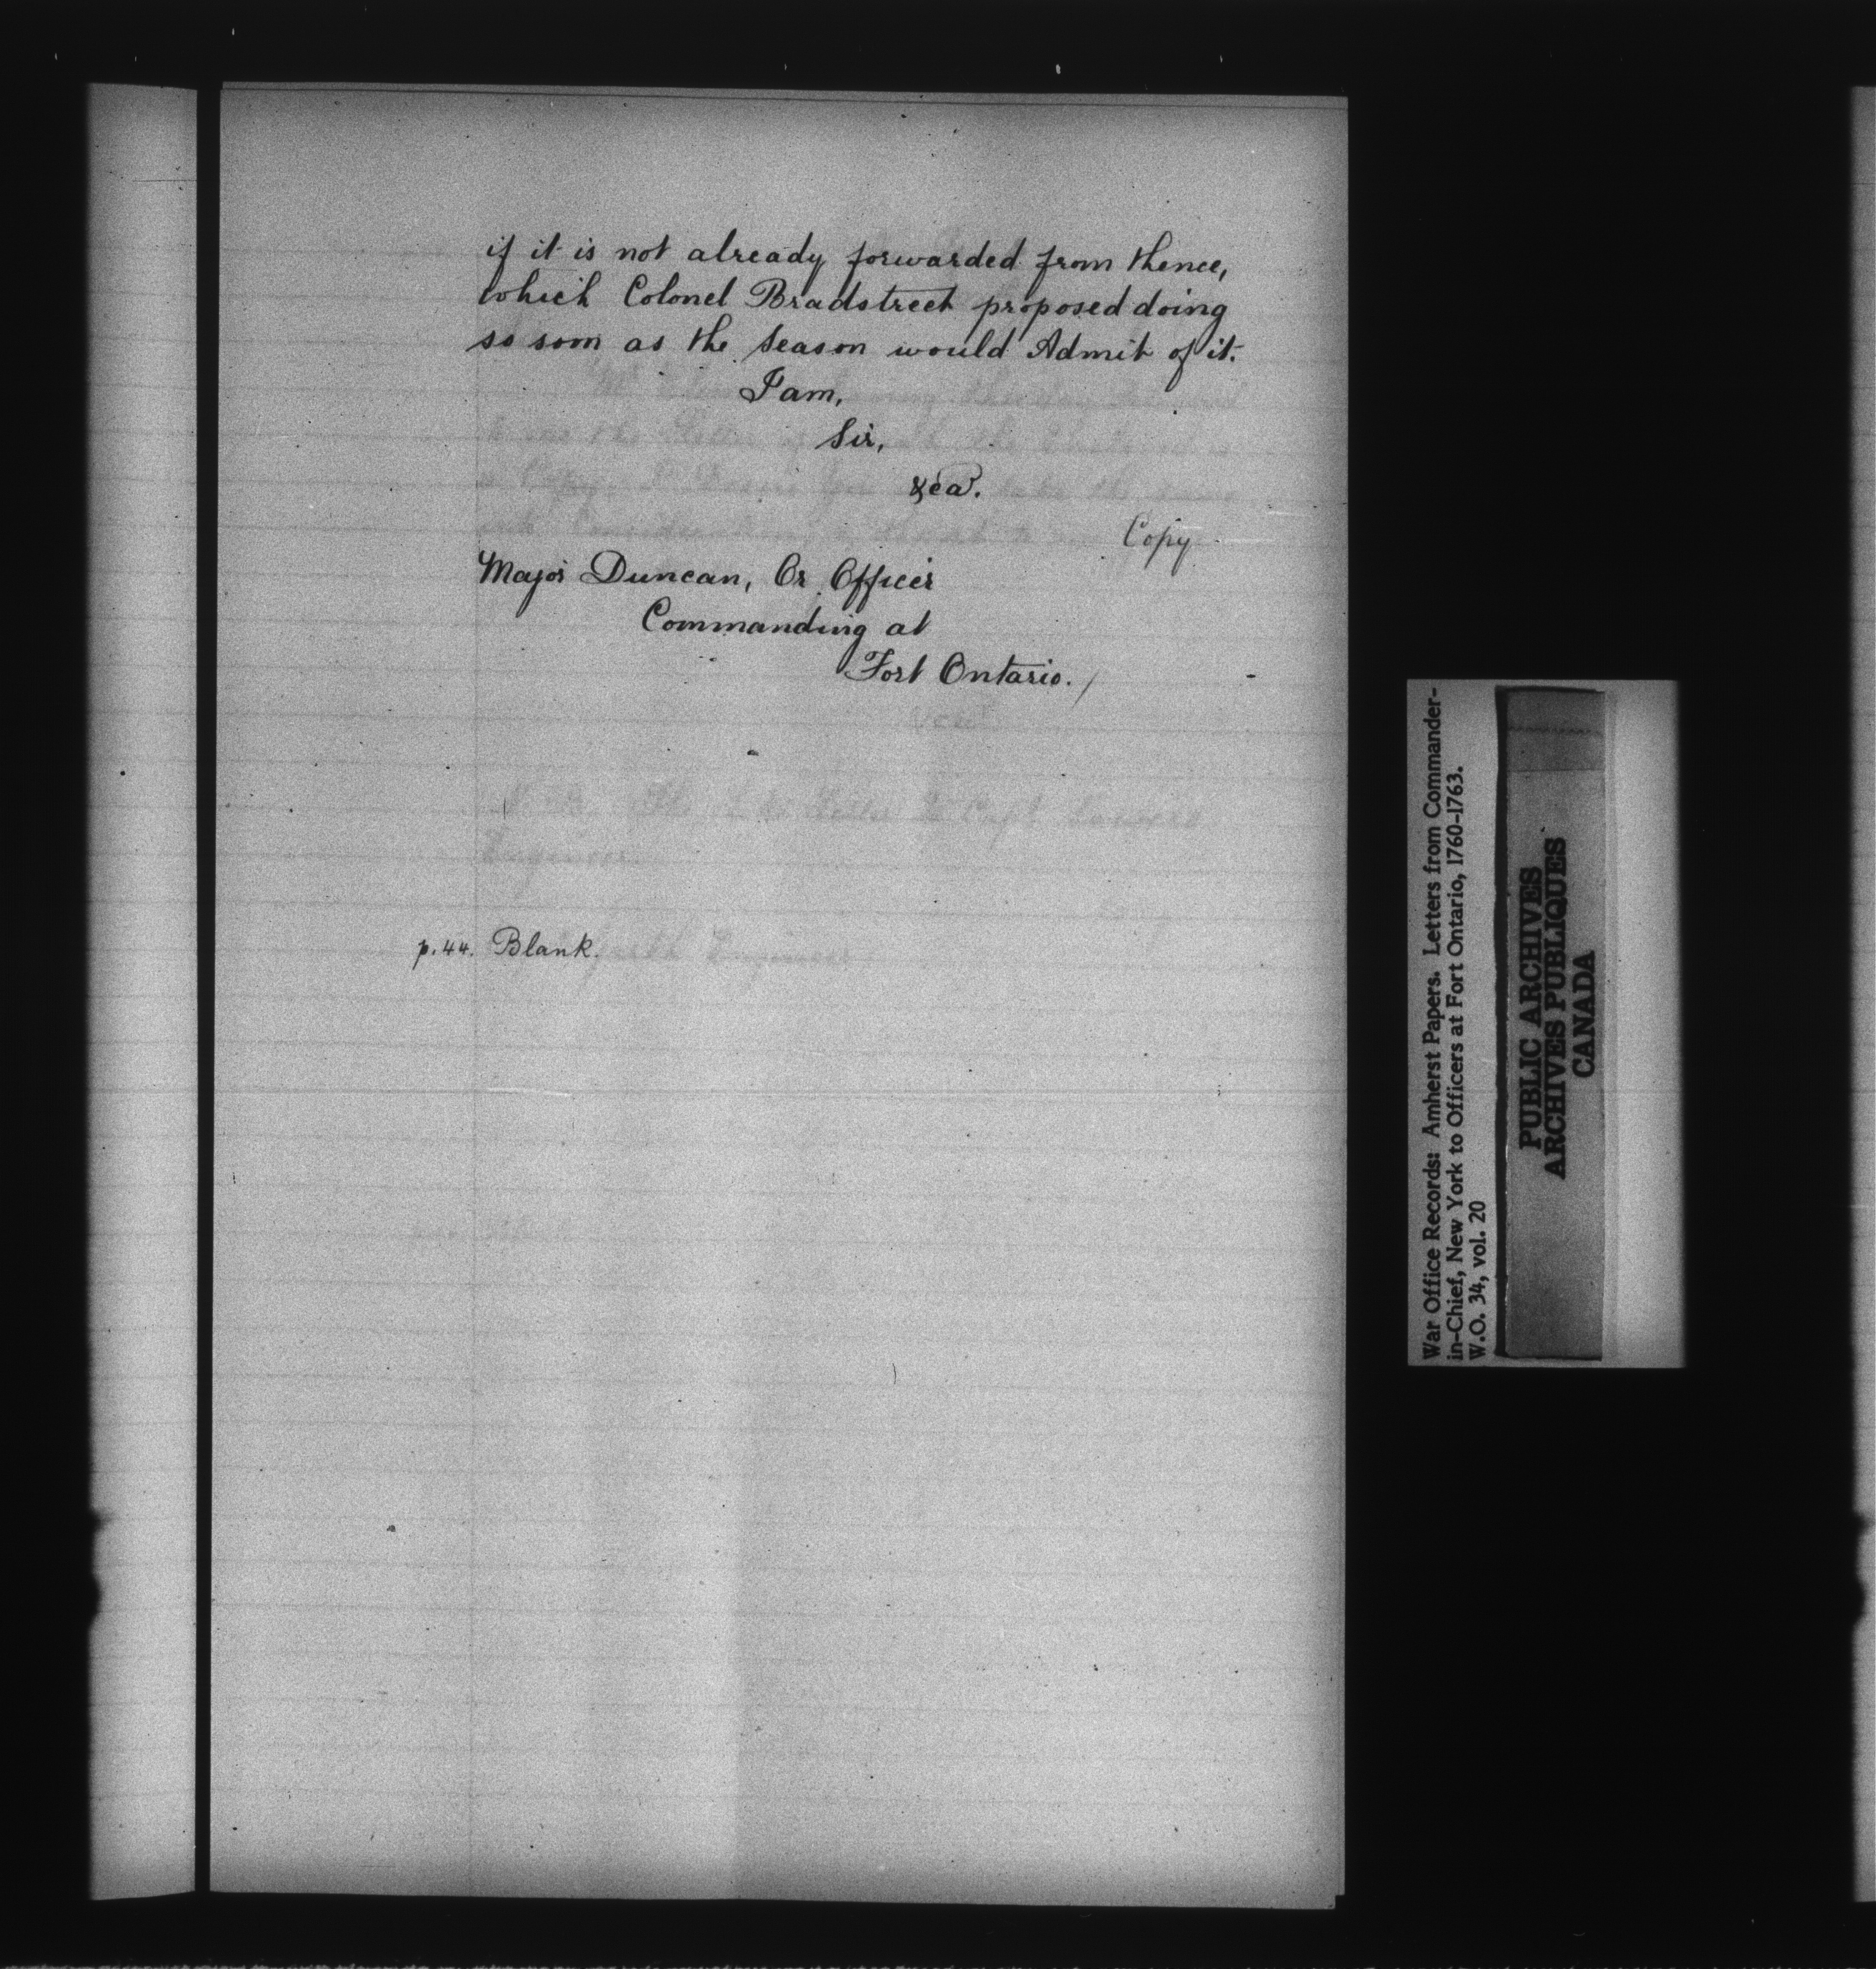 if it is not already forwarded from thence,
which Colonel Bradstreet proposed doing
so soon as the Season would Admit of it.
I am,
Sir,
&ca.
Copy
Major Duncan, Or Officer
Commanding at
Fort Ontario./
p. 44. Blank.
War Office Records: Amherst Papers. Letters from Commander-
in-Chief, New York to Officers at Fort Ontario, 1760-1763.
W.O. 34, vol. 20
PUBLIC ARCHIVES
ARCHIVES PUBLIQUES
CANADA